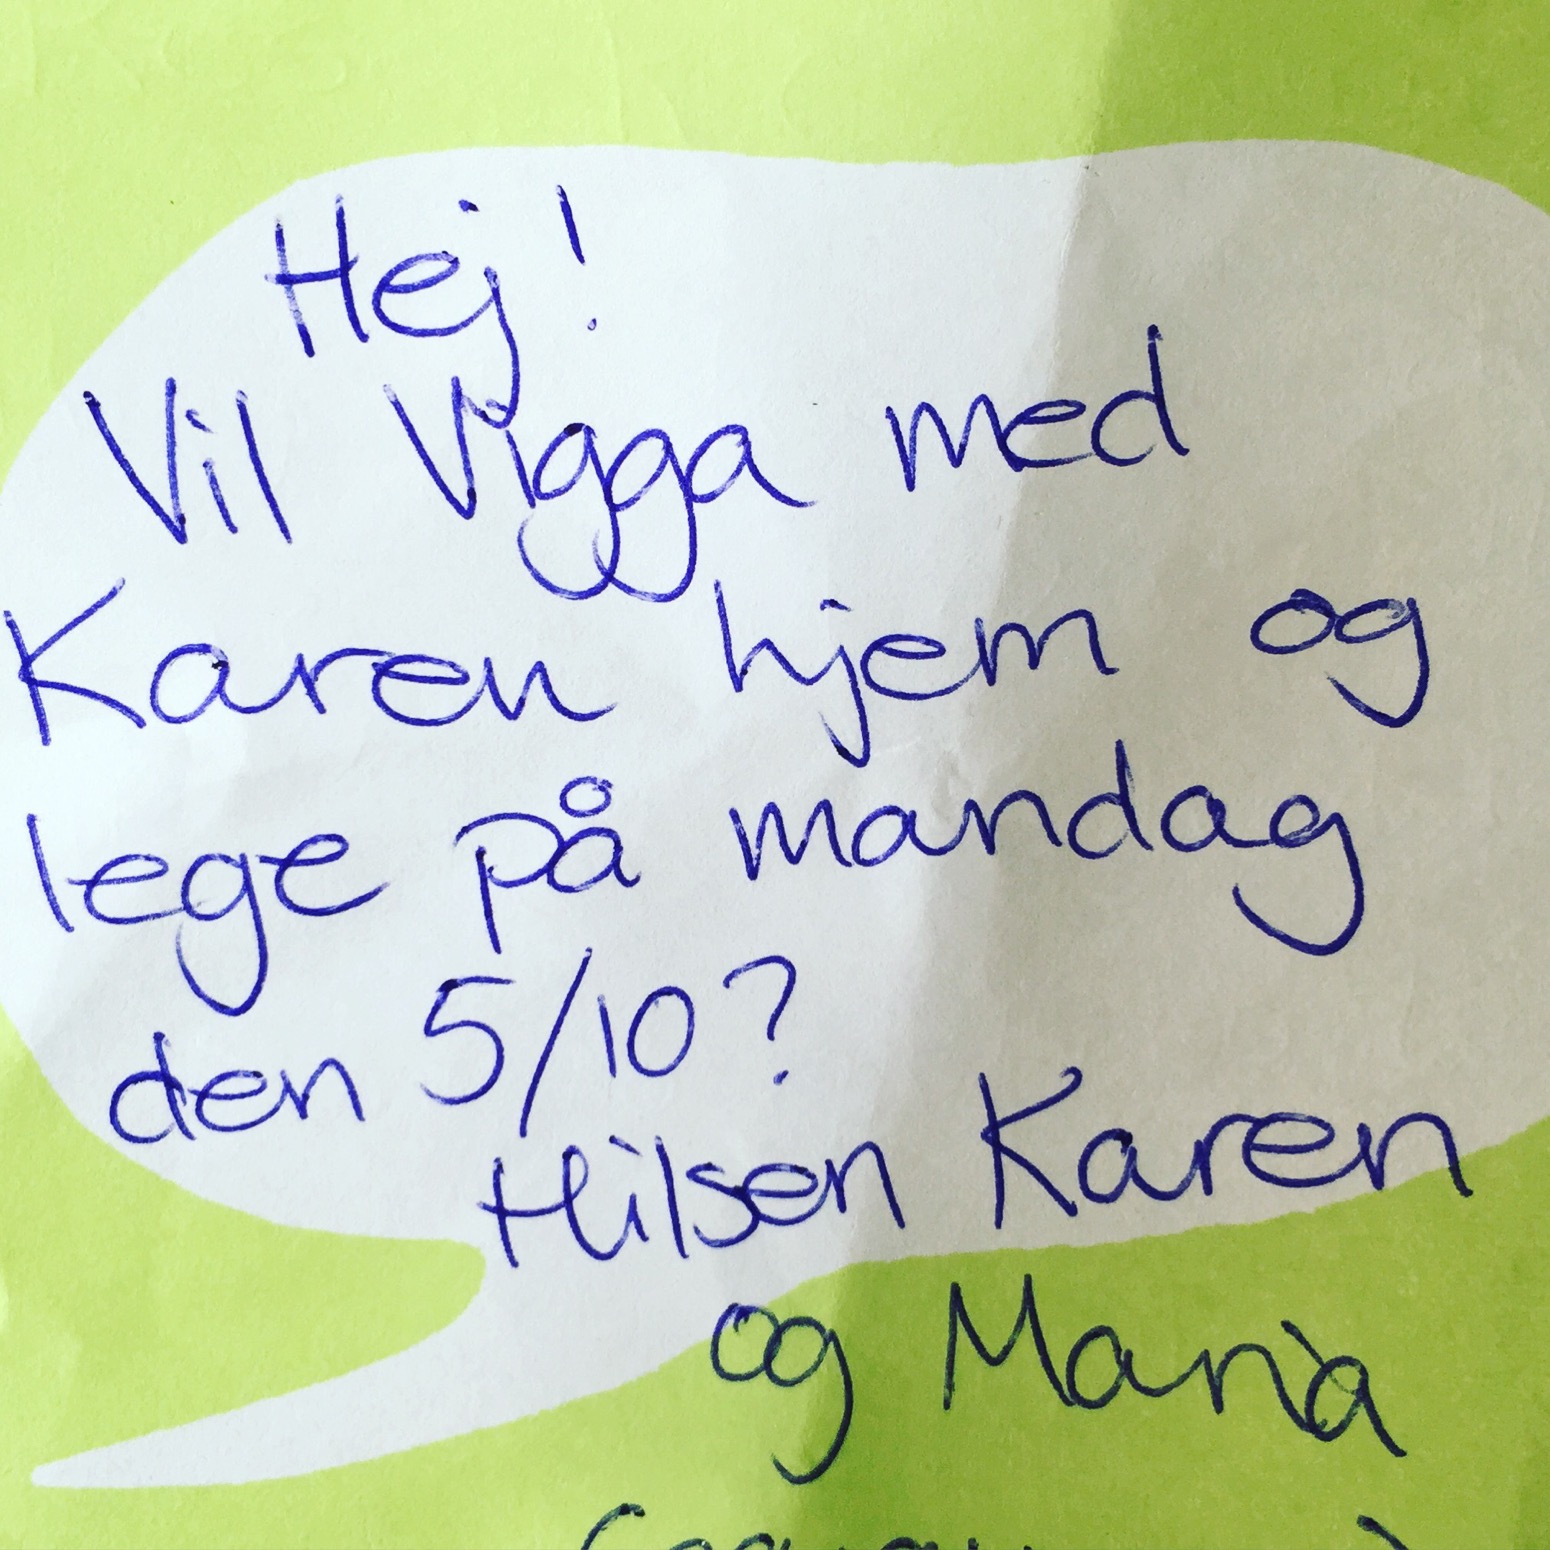 Hej!
Vil Vigga med
Karen hjem og
lege på mandag
den 5/10?
Hilsen Karen
og Maria